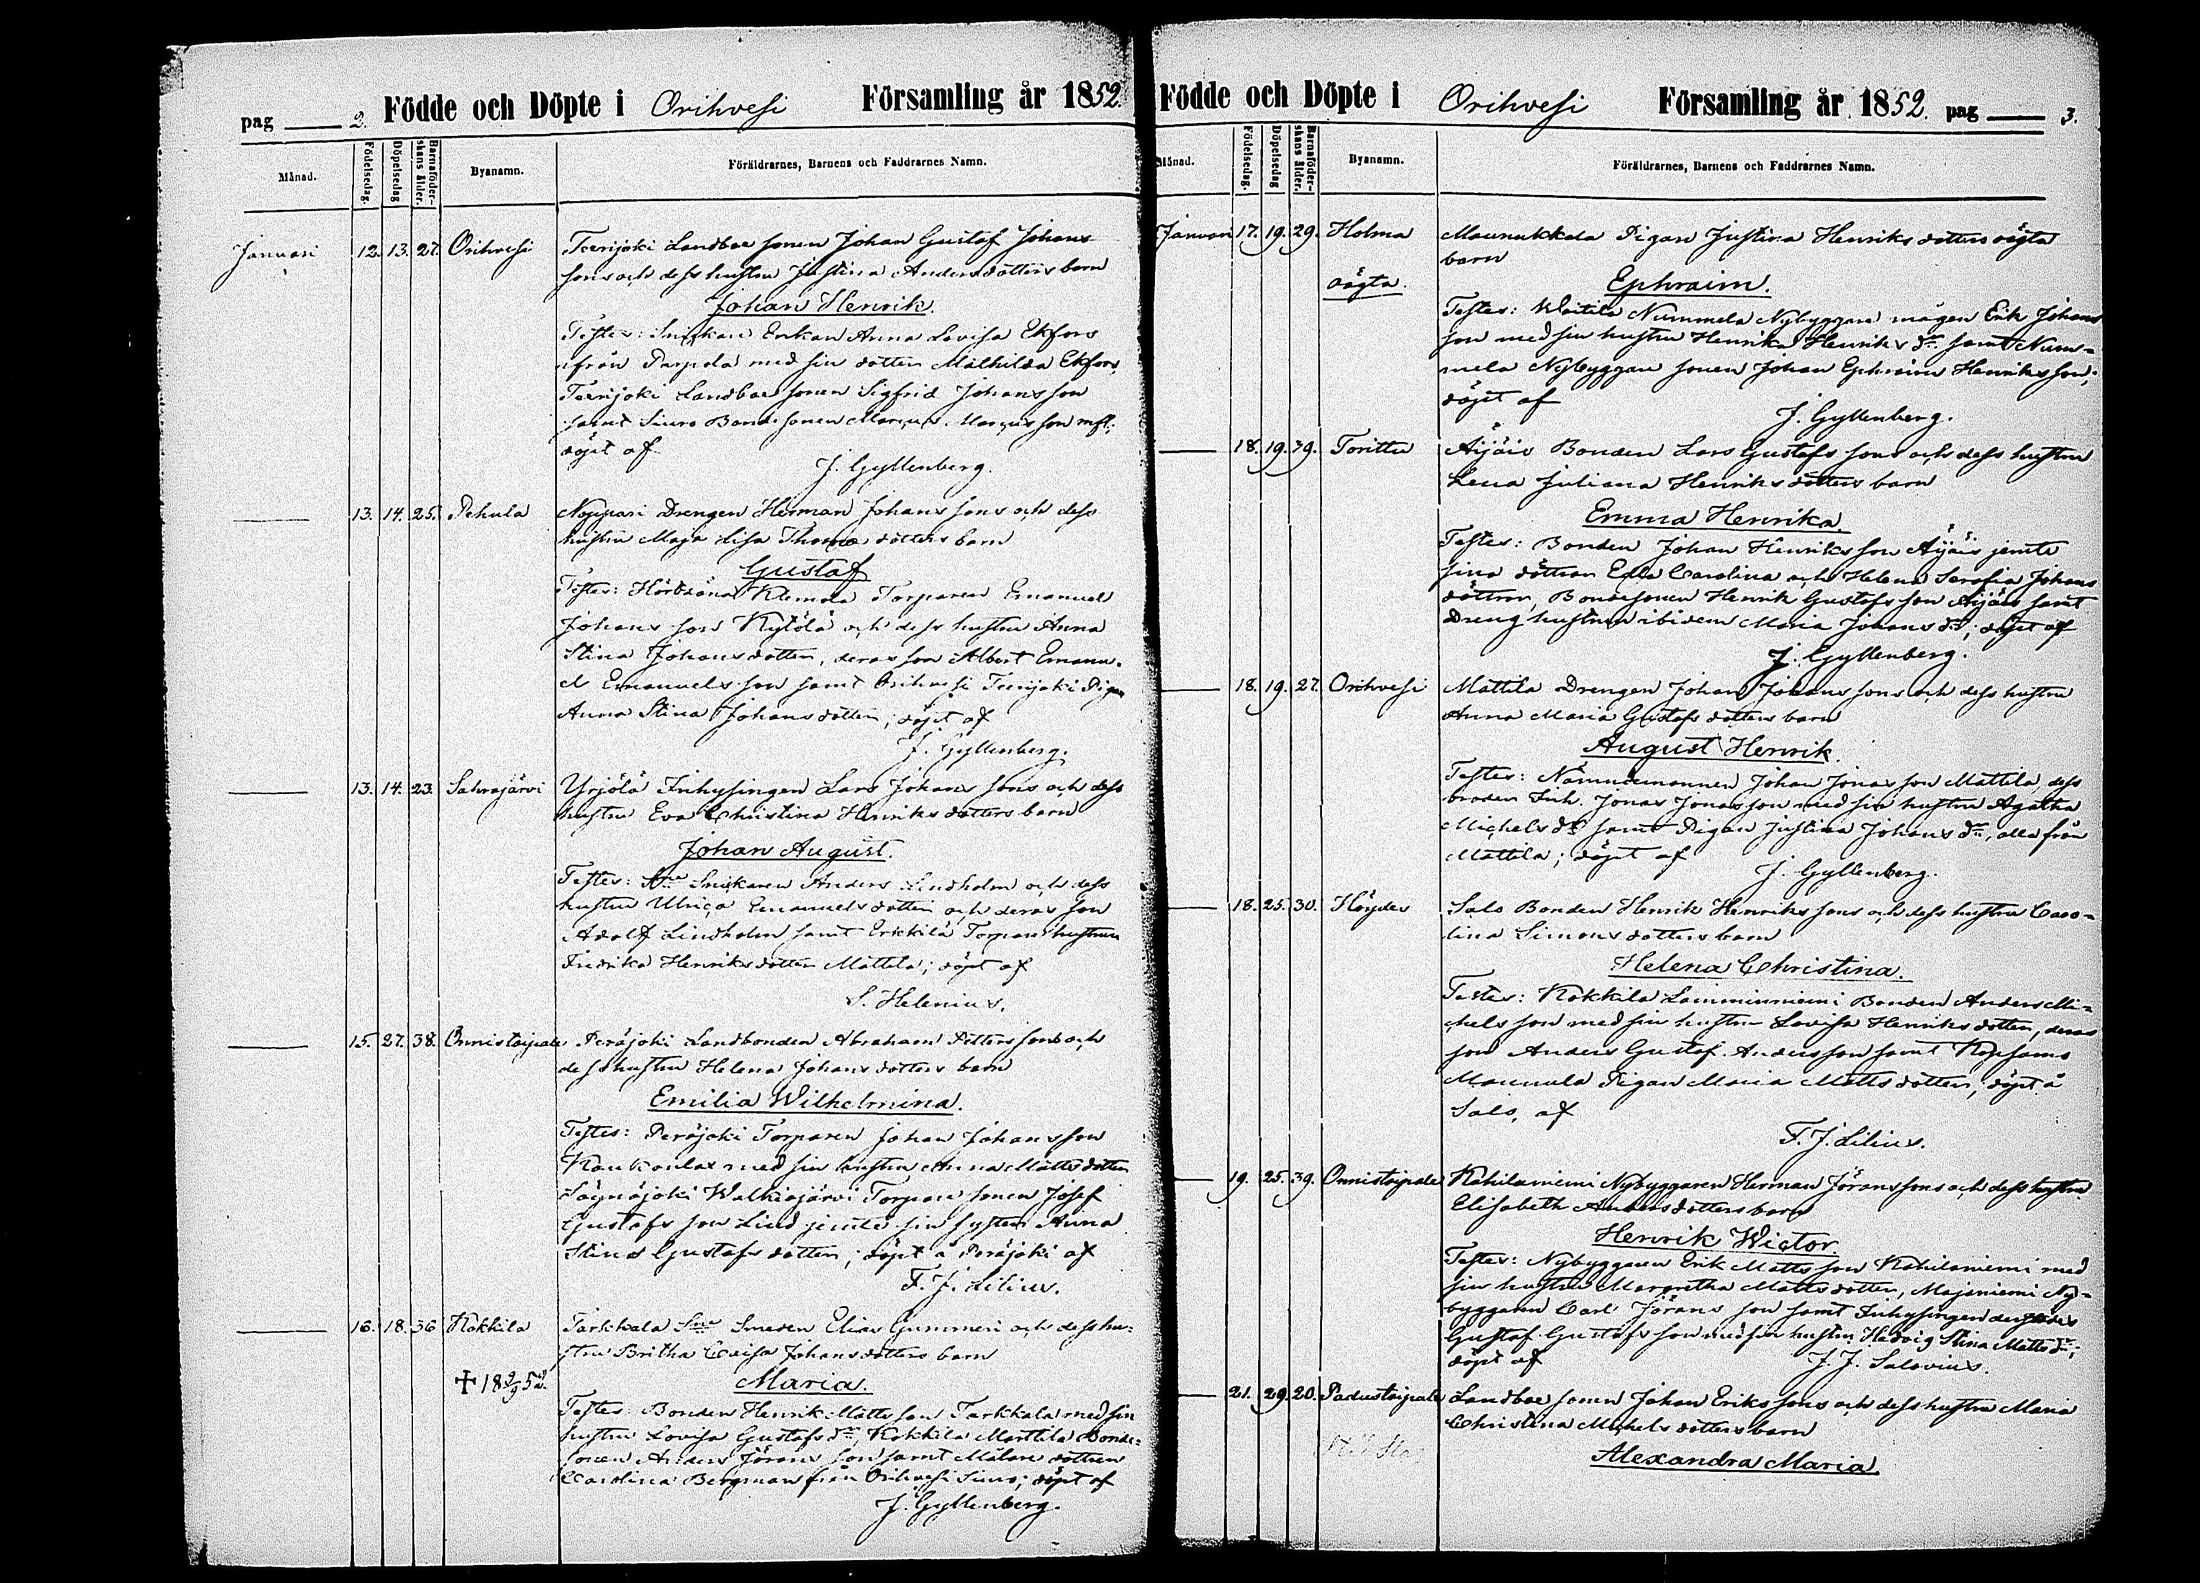 pag 2. Födde och Döpte i Orihvesi Församling år 1852.
Månad. Födelsedag. Döpelsedag Barnaföderskans ålder. Byanamn. Föräldrarnes, Barnens och Faddrarnes Namn.
Januari 12. 13. 27. Orihvesi Teerijoki Landboe sonen Johan Gustaf Johans
sons och dess hustru Justina Andersdotters barn
Johan Henrik.
Testes: Snickare Enkan Anna Lovisa Ekfors
från Parpola med sin dotter Mathilda Ekfors,
Teerijoki Landboe sonen Sigfrid Johansson
samt Siuro Bonde sonen Marcus Marcusson
döpt af
J. Gyllenberg.
13. 14. 25. Pehula Noppari Drengen Herman Johans sons och dess
hustru Maja Lisa Thomæ dotters barn
Gustaf
Testes: Klemola Torparen Emanuel
Johans son Kytölä och dess hustru Anna
Stina Johansdotter, deras son Albert Emanu-
el Emanuels son samt Orihvesi Teerijoki Pigan
Anna Stina Johansdotter; döpt af
J. Gyllenberg.
13. 14. 23. Sahrajärvi Yrjölä Inhysingen Lars Johans sons och dess
hustru Eva Christina Henriks dotters barn
Johan August.
Testes: Snickaren Anders Lindholm och dess
hustru Ulrica Emanuelsdotter och deras son
Adolf Lindholm samt Erkkilä Torpare hustrun
Fredrika Henriksdotter Mattila; döpt af
S. Helenius.
15. 27. 38. Onnistaipale Peräjoki Landbonden Abraham Petters sons och
dess hustru Helena Johans dotters barn
Emilia Wilhelmina.
Testes: Peräjoki Torparen Johan Johansson
med sin hustru Anna Mattsdotter
Walkiajärvi Torpare sonen Josef
Gustafs son Lind jemte sin syster Anna
Stina Gustafs dotter; döpt å Peräjoki af
F. J. Lilius.
16. 18. 36 Kokkila Tarkkala Smeden Elias Gummeri och dess hu-
stru Britha Lovisa Johansdotters barn
✝ 18 2/9 52. Maria.
Testes: Bonden Henrik Mattsson Tarkkala med sin
hustru Lovisa Gustafsdr, Kokkila Marttila Bonde-
sonen Anders Jörans son samt Målare dottren
Carolina Bergman från Orihvesi Siuro; döpt af
J. Gyllenberg.
Födde och Döpte i Orihvesi Församling år 1852. pag 3.
Månad. Födelsedag. Döpelsedag Barnaföderskans ålder. Byanamn. Föräldrarnes, Barnens och Faddrarnes Namn.
Januari 17. 19. 29. Holma Maunukkala Pigan Justina Henriks dotters oägta
barn
oägta. Ephraim.
Testes: Nummela Nybyggare mågen Erik Johans
son med sin hustru Henrika Henriks dr samt Num-
mela Nybyggare sonen Johan Ephraim Henriksson;
döpt af
J. Gyllenberg.
18. 19. 39. Torittu Äijäis Bonden Lars Gustafs sons och dess hustru
Lena Juliana Henriksdotters barn
Emma Henrika.
Testes: Bonden Johan Henriksson Äijäis jemte
sina döttrar Edla Carolina och Helena Serafia Johans
döttrar, Bondesonen Henrik Gustafs son Äijäis samt
Dreng hustrun ibidem Maria Johans dr; döpt af
J. Gyllenberg.
18. 19. 27. Orihvesi Mattila Drengen Johan Johans sons och dess hustru
Anna Maria Gustafs dotters barn
August Henrik.
Testes: Nämndemannen Johan Jonasson Mattila, dess
broder Inh. Jonas Jonasson med sin hustru Agatha
Michels dr samt Pigan Justina Johans dr, alla från
Mattila; döpt af
J. Gyllenberg.
18. 25. 30. Höydes Salo Bonden Henrik Henriks sons och dess hustru Caro-
lina Simons dotters barn
Helena Christina.
Testes: Kokkila Lamminniemi Bonden Anders Mi-
chels son med sin hustru Lovisa Henriksdotter, deras
son Anders Gustaf Andersson samt Kopsamo
Maunula Pigan Maria Mattsdotter; döpt å
Salo, af
F. J. Lilius.
19. 25. 39. Onnistaipale Kahilaniemi Nybyggaren Herman Jöranssons och dess hustru
Elisabeth Andersdotters barn
Henrik Wictor.
Testes: Nybyggaren Erik Mattsson Kahilaniemi med
sin hustru Margretha Mattsdotter, Majaniemi Ny-
byggaren Carl Jörans son samt Inhysingen
Gustaf Gustafsson med sin hustru Hedvig Stina Matts dr;
döpt af J. J. Salovius.
21. 29. 20. Padustaipale Landboe sonen Johan Eriks sons och dess hustru Maria
Christina Michels dotters barn
Alexandra Maria.